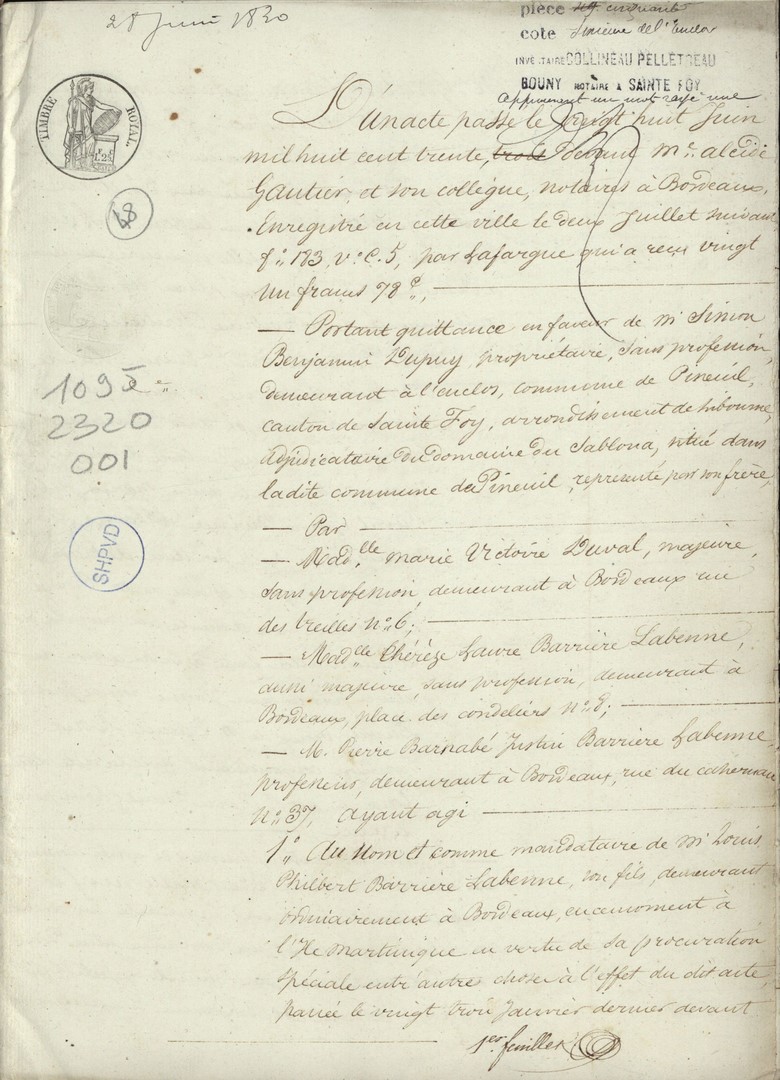 28 Juin 1830
pièce cinquante
cote Sixième de l'Enclos
INVENTAIRE COLLINEAU PELLETREAU
BOUNY NOTAIRE A SAINTE FOY
approuvant un mot rayé une
TIMBRE ROYAL
1f. 25c.
48
1095
2320
001
SHPVD
D'un acte passé le vingt huit Juin
mil huit cent trente, trois devant Me. alcide
Gautier, et son collègue, notaires à Bordeaux,
Enregistré en cette ville le deux Juillet suivant
fo. 183, vo. C. 5, par Lafargue qui a reçu vingt
un francs 78 c.,
— Portant quittance en faveur de Mr Simon
Benjamin Dupuy, propriétaire, sans profession,
demeurant à l'enclos, commune de Pineuil,
canton de Sainte Foy, arrondissement de Libourne,
adjudicataire du domaine du Sablona, situé dans
ladite commune de Pineuil, représenté par son frère,
— Par
— Madlle. marie Victoire Duval, majeure,
sans profession, demeurant à Bordeaux rue
des treilles no. 6;
— Madlle Thérèze Laure Barrière Labenne,
aussi majeure, sans profession, demeurant à
Bordeaux, place des cordeliers no. 8;
— M. Pierre Barnabé Justin Barrière Labenne
professeur, demeurant à Bordeaux, rue du
no. 37, ayant agi
1o. Au nom et comme mandataire de Mr Louis
Philbert Barrière Labenne, son fils, demeurant
ordinairement à Bordeaux, en ce moment à
l'Ile Martinique en vertu de sa procuration
spéciale entr'autre chose à l'effet du dit acte,
passée le vingt trois Janvier dernier devant
1er feuillet